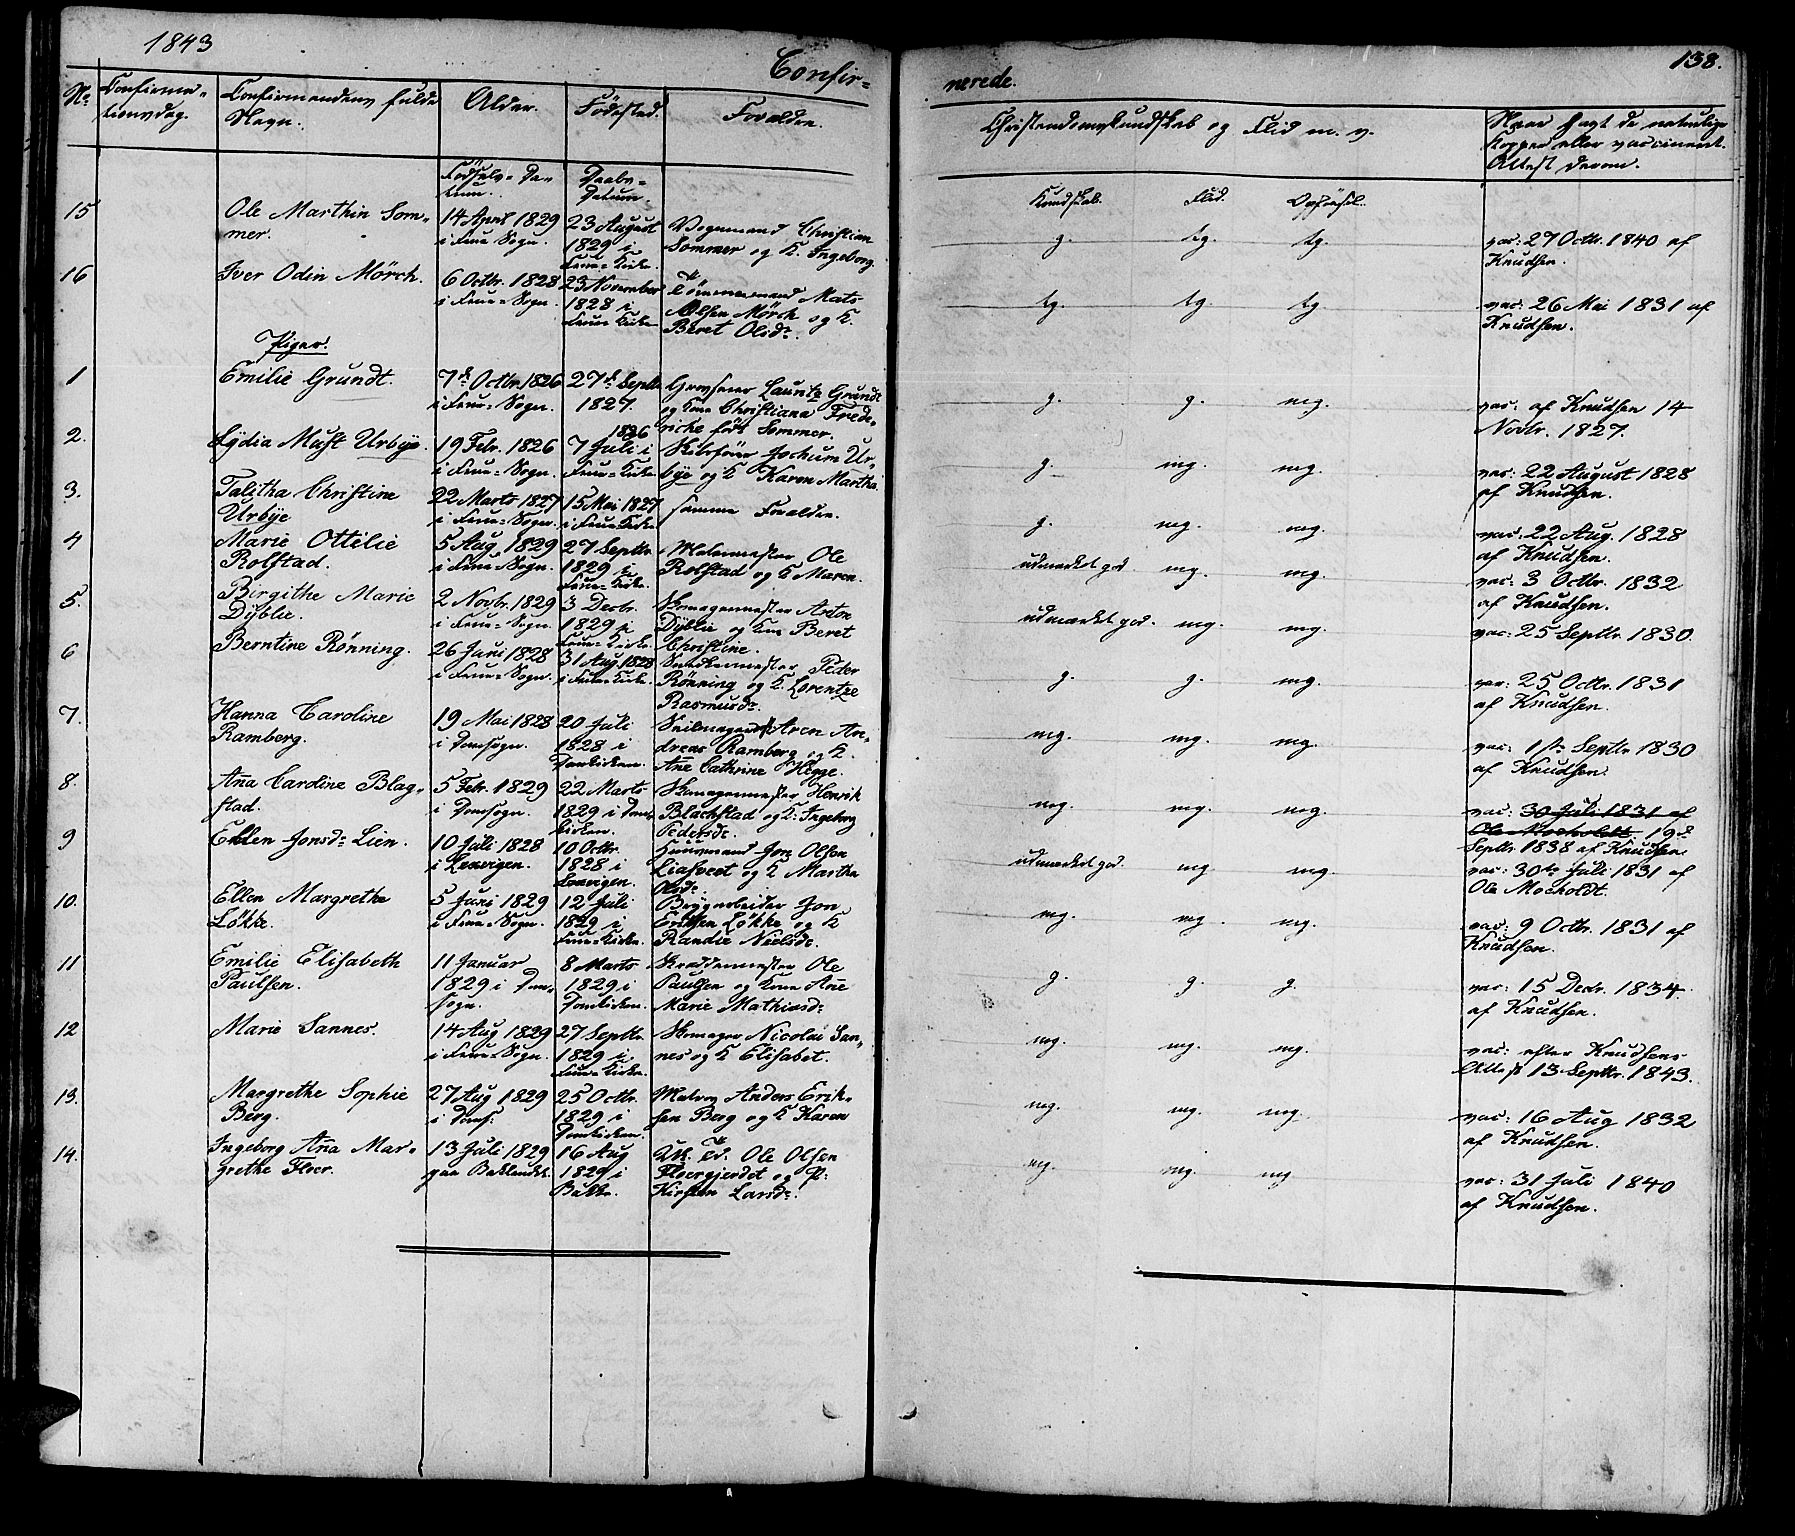 1843
138.
Confir=
merede.
No
Confirma-
tionsdag.
Confirmandens fulde
Navn.
Alder.
Födested.
Forældre.
Christendomskundskab og Flid m. v.
Naar havt de naturlige
Kopper eller vaccineret.
Attest derom.
Födsels-Da-
tum.
Daabs-
Datum.
Kundskab.
Flid.
Opförsel.
15
Ole Marthin Som-
mer.
14 April 1829
i Frue Sogn.
23 August
1829 i
Frue-Kirke.
Vognmand Christian
Sommer og K. Ingeborg.
g.
tg.
tg.
vac: 27 Octbr. 1840 af
Knudsen.
16
Iver Odin Mörch.
6 Octbr. 1828
i Frue-Sogn.
23 November
1828 i
Frue-Kirke
Tömmermand Mats
Olsen Mörch og K.
Beret Olsdr.
tg.
tg
tg
vac: 26 Mai 1831 af
Knudsen.
Piger.
1
Emilie Grundt.
7de Octbr. 1826
i Frue-Sogn.
27de Septbr
1827.
Grosserer Lauritz Grundt
og Kone Christiana Frede-
riche föd Sommer.
g.
g.
mg.
vac: af Knudsen 14
Novbr. 1827.
2.
Lydia Must Urbye.
19 Febr. 1826
i Frue-Sogn.
1826
7 Juli i
Frue-Kirke
Skibsförer Jochum Ur-
bye og K Karen Martha.
g.
mg.
mg.
vac: 22 August 1828
af Knudsen.
3.
Talitha Christine
Urbye
22 Marts 1827
i Frue-Sogn.
15 Mai 1827
i Frue Kirke
samme Forældre.
g.
mg.
mg.
vac: 22 Aug. 1828
af Knudsen.
4
Marie Ottilie
Rolstad.
5 Aug. 1829
i Frue-Sogn.
27 Septbr.
1829 i
Frue-Kirke.
Malermester Ole
Rolstad og K Maren.
udmærket god.
mg.
mg.
vac: 3 Octbr. 1832
af Knudsen.
5.
Birgithe Marie
Dyblie.
2 Novbr. 1829
i Frue-Sogn.
3 Decbr.
1829 i
Frue-Kirke.
Skomagermester Anton
Dyblie og Kone Beret
Christine.
udmærket god.
mg.
mg.
vac: 25 Septbr. 1830.
6
Berntine Rönning.
26 Juni 1828
i Frue-Sogn.
31 Aug 1828
i Frue-Kirke.
Snedkermester Peder
Rönning og K. Lorentze
Rasmusdr.
g.
g.
mg.
vac: 25 Octbr. 1831
af Knudsen.
7.
Hanna Caroline
Ramberg.
19 Mai 1828
i Domsogn.
20 Juli
1828 i
Domkirken.
Seilmager Aren An-
dreas Ramberg og K.
Ane Cathrine Hegge.
mg.
mg.
mg.
vac: 1ste Septbr 1830
af Knudsen.
8.
Ana Caroline Blag-
stad.
5 Febr. 1829
i Domsogn.
22 Marts
1829 i Dom-
kirken.
Skomagermester Henrik
Blachstad og K: Ingeborg
Pedersdr.
mg.
mg.
mg.
vac: 30 Juli 1831 af
Ole Moeholdt. 19de
Septbr. 1838 af Knudsen.
9
Ellen Jonsdr Lien.
10 Juli 1828
i Lexvigen.
10 Octbr.
1828 i
Lexvigen.
Huusmand Jon Olsen
Liasveet og K Martha
Olsdr.
udmærket god.
mg
mg.
vac: 30te Juli 1831 af
Ole Moeholdt.
10.
Ellen Margrethe
Lökke.
5 Juni 1829
i Frue-Sogn.
12 Juli
1829 i
Frue-Kirke.
Brygarbeider Jon
Eriksen Lökke og K
Randie Nielsdr.
mg.
mg.
mg.
vac: 9 Octbr. 1831 af
Knudsen.
11
Emilie Elisabeth
Paulsen.
11 Januar
1829 i Dom-
sogn.
8 Marts
1829 i
Domkirken.
Skreddermester Ole
Paulsen og Kone Ane
Marie Mathiasdr.
g.
g.
g.
vac: 15 Decbr. 1834.
af Knudsen.
12
Marie Sannes.
14 Aug 1829
i Frue-Sogn.
27 Septbr.
1829 i
Frue-Kirke.
Skomager Nicolai San-
nes og K Elisabet.
mg.
mg.
mg.
vac: efter Knudsens
Attest 13 Septbr. 1843.
13.
Margrethe Sophie
Berg.
27 Aug 1829
i Doms:
25 Octbr.
1829 i
Domkirken.
Matros Anders Erik-
sen Berg og K Karen
mg.
mg.
mg.
vac: 16 Aug 1832
af Knudsen.
14.
Ingeborg Ana Mar-
grethe Floer.
13 Juli 1829
paa Baklandet.
16 Aug
1829 i
Bakke.
Ole Olsen
Floergjerdet og P:
Kirsten Larsdr.
mg.
mg.
mg
vac: 31 Juli 1840
af Knudsen.